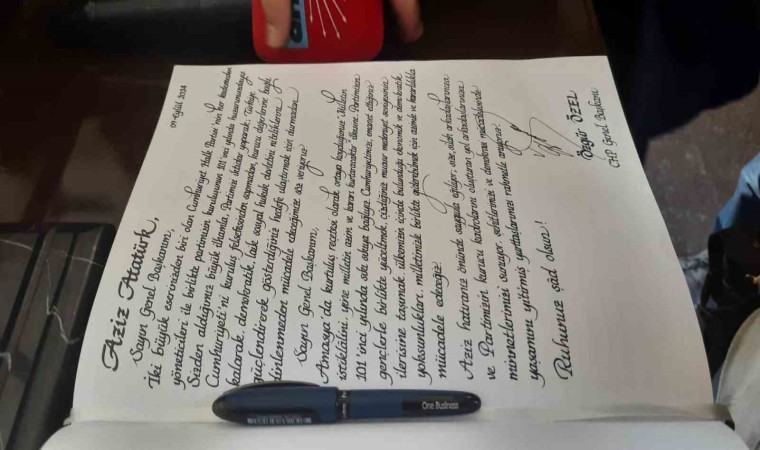 09 Eylül 2024
Aziz Atatürk,
Sayın Genel Başkanım,
İki büyük eserinizden biri olan Cumhuriyet Halk Partisi'nin her kademeden
yöneticileri ile birlikte partimizin kuruluşunun 101'inci yılında huzurunuzdayız.
Sizden aldığımız büyük ilhamla, Partimizi iktidar yaparak; Türkiye
Cumhuriyeti'ni kuruluş felsefesinden sapmadan, kurucu değerlerine bağlı
kalarak, demokratik, laik sosyal hukuk devleti niteliklerini
güçlendirerek gösterdiğiniz hedefe ulaştırmak için durmadan,
dinlenmeden mücadele edeceğimize söz veriyoruz.
Sayın Genel Başkanım,
Amasya'da kurtuluş reçetesi olarak ortaya koyduğunuz "Milletin
istiklâlini, yine milletin azim ve kararı kurtaracaktır" ilkesine, Partimizin
101'inci yılında sıkı sıkıya bağlıyız. Cumhuriyetimizi, emanet ettiğiniz
gençlerle birlikte yüceltmek, çizdiğiniz muasır medeniyet seviyesinin
ilerisine taşımak, ülkemizin içinde bulunduğu ekonomik ve demokratik
yoksunlukları, milletimizle birlikte aşmak için azimle ve kararlılıkla
mücadele edeceğiz.
Aziz hatıranız önünde saygıyla eğiliyor; size, silah arkadaşlarınıza
ve Partimizin kurucu kadrolarını oluşturan yol arkadaşlarınıza
minnetlerimizi sunuyor, şehitlerimizi ve demokrasi mücadelesinde
yaşamını yitirmiş yurttaşlarımızı rahmetle anıyoruz.
Ruhunuz şâd olsun!
Özgür ÖZEL
CHP Genel Başkanı
One Business